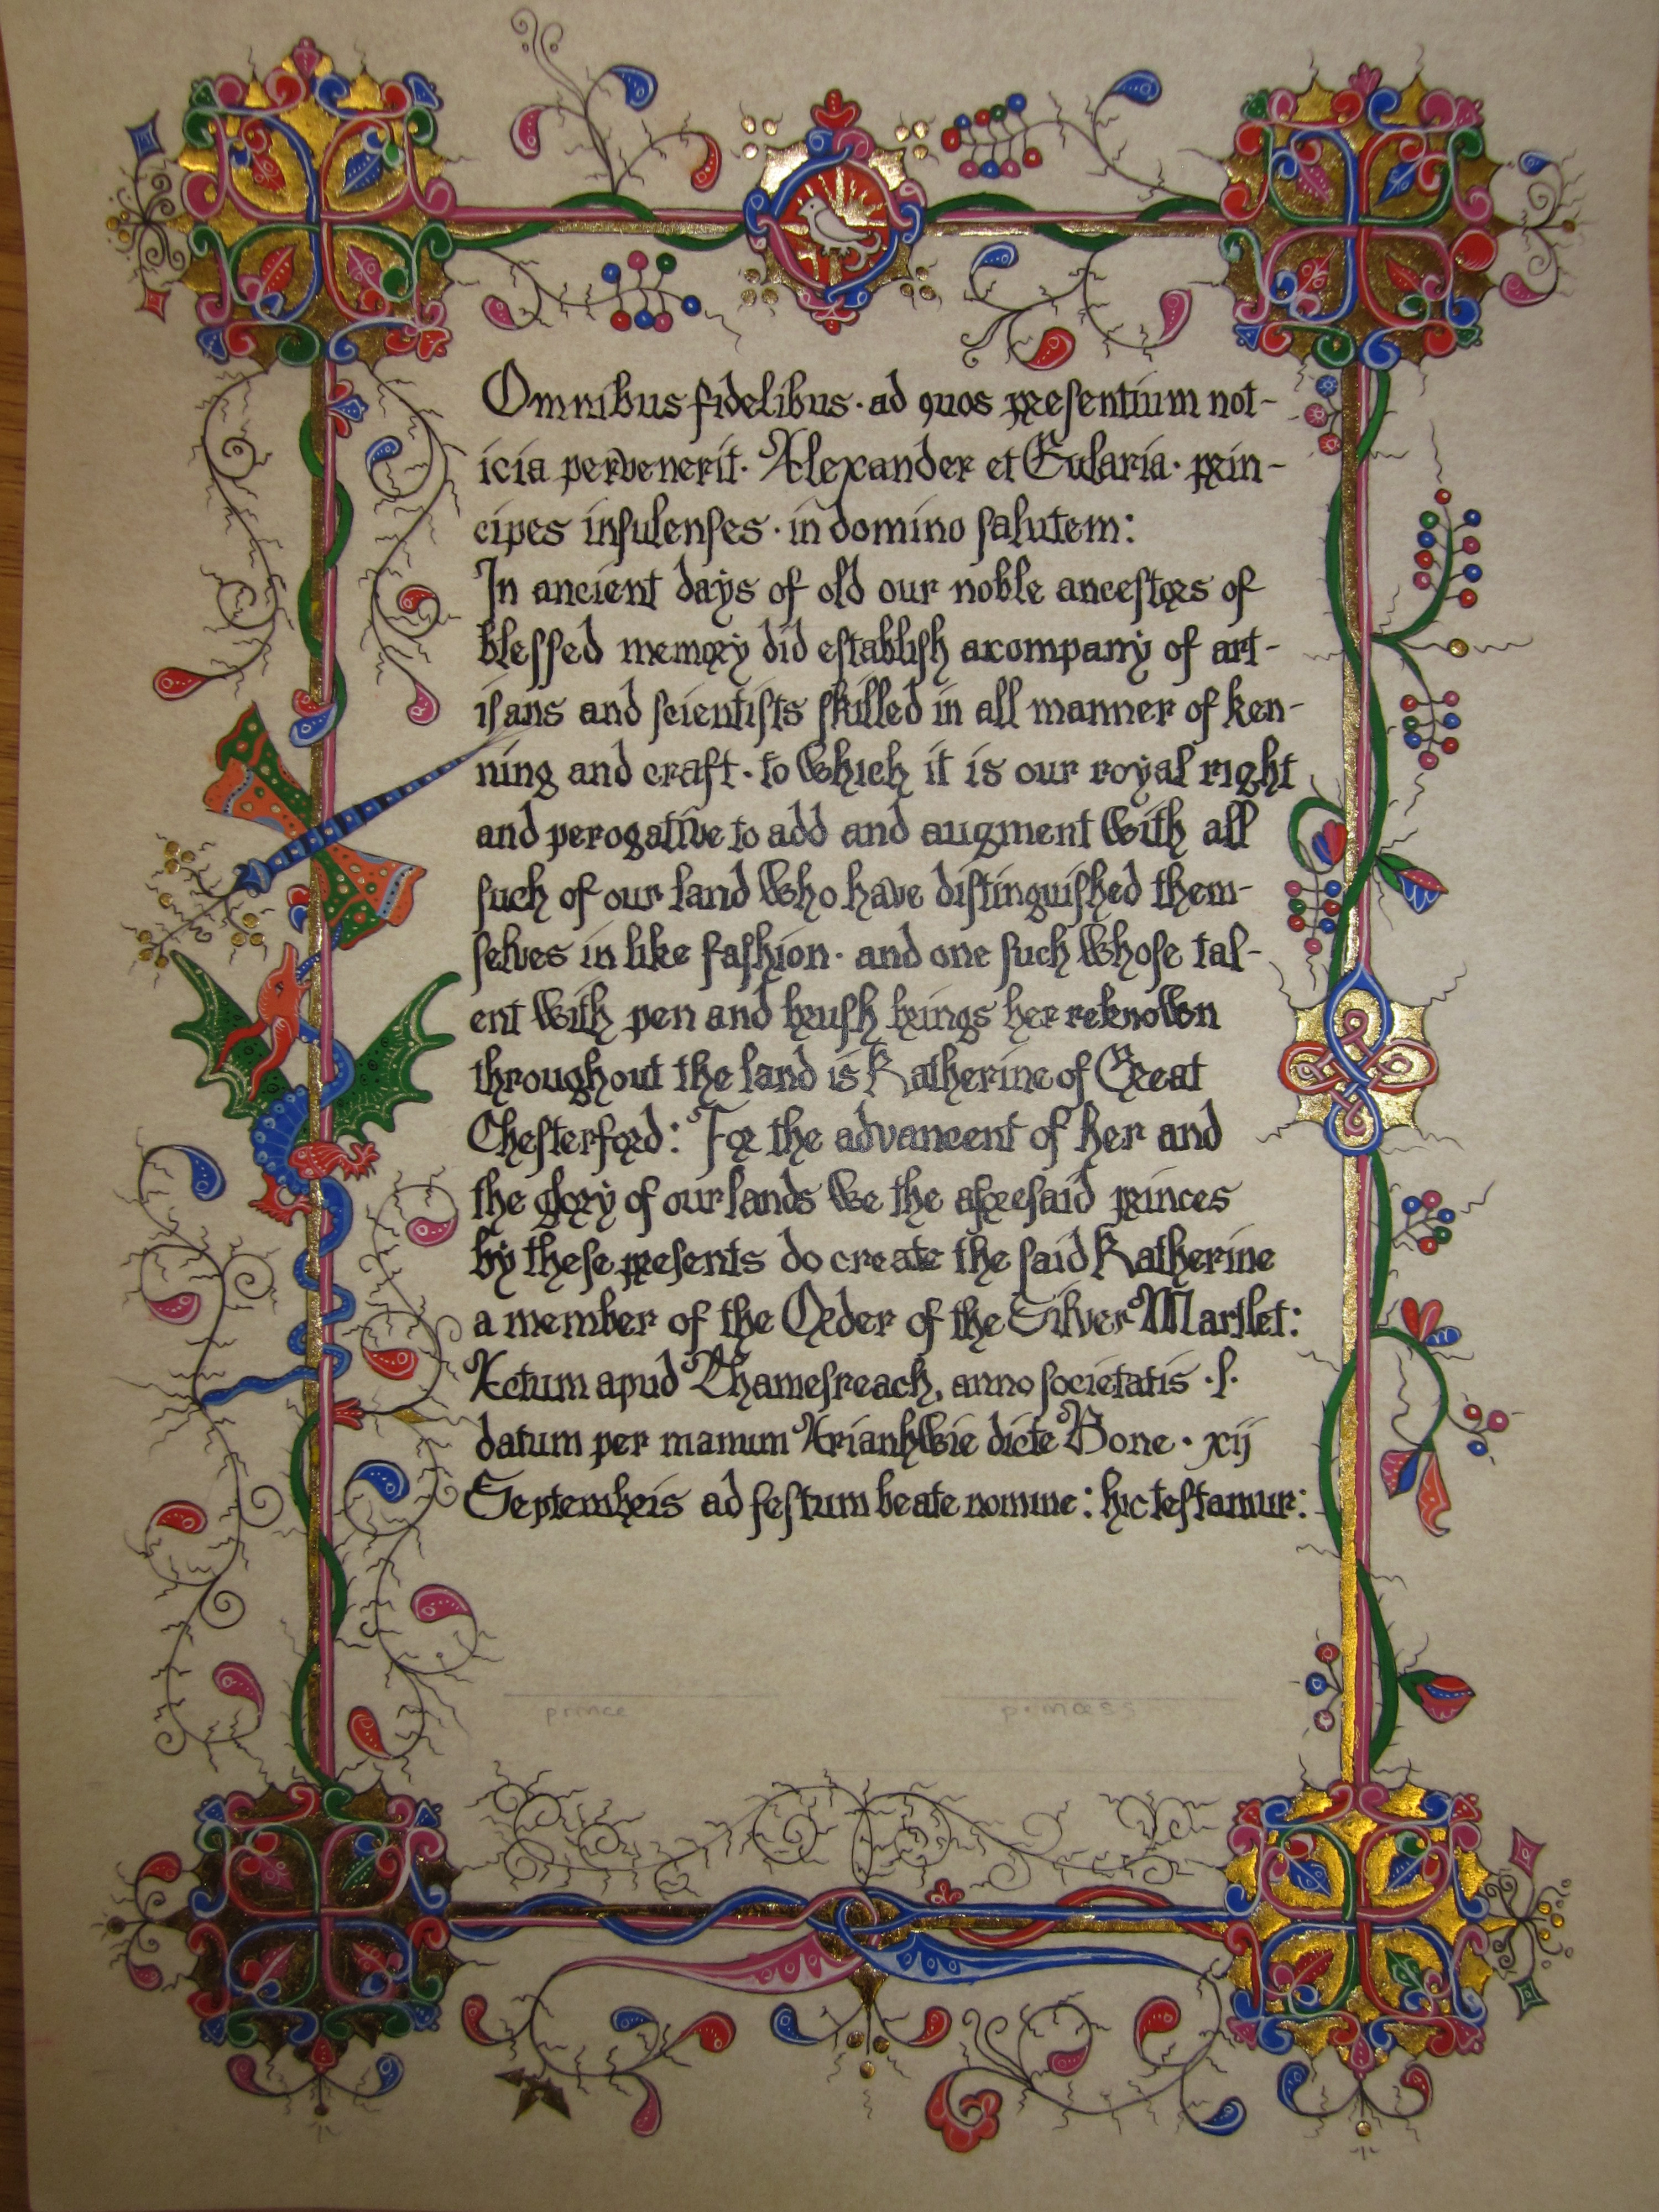 Omnibus fidelibus · ad quos presentium not-
icia pervenerit · Alexander et Eularia · prin-
cipes insulenses · in domino salutem:
In ancient days of old our noble ancestors of
blessed memory did establish a company of art-
isans and scientists skilled in all manner of ken-
ning and craft · to which it is our royal right
and perogative to add and augment with all
such of our land who have distinguished them-
selves in like fashion · and one such whose tal-
ent with pen and brush brings her reknown
throughout the land is Katherine of Great
Chesterford: For the advancent of her and
the glory of our lands we the aforesaid princes
by these presents do create the said Katherine
a member of the Order of the Silver Martlet:
Actum apud Thamesreach, anno societatis · l ·
datum per manum Arianhwie dicte Bone · xij
Septembris ad festum beate nomine: hic testamur:
prince princess